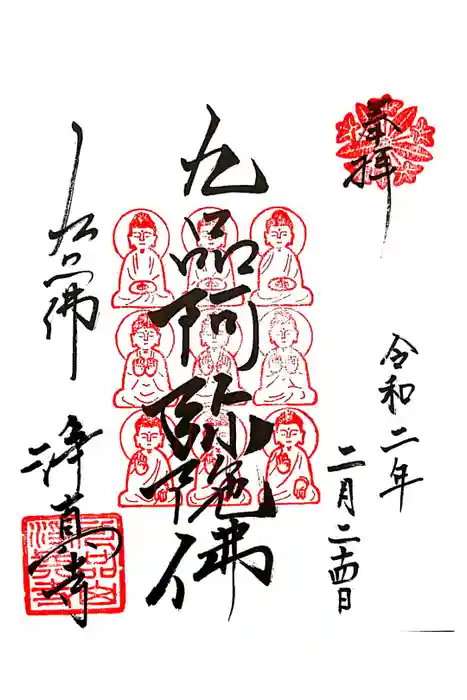 奉拝
令和二年
二月二十四日
九品阿弥陀佛
九品佛
淨真寺